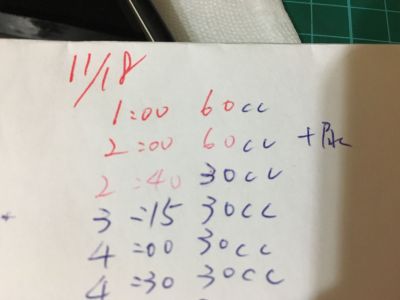 11/18
1:00 60cc
2:00 60cc
2:40 30cc
3:15 30cc
4:00 30cc
4:30 30cc